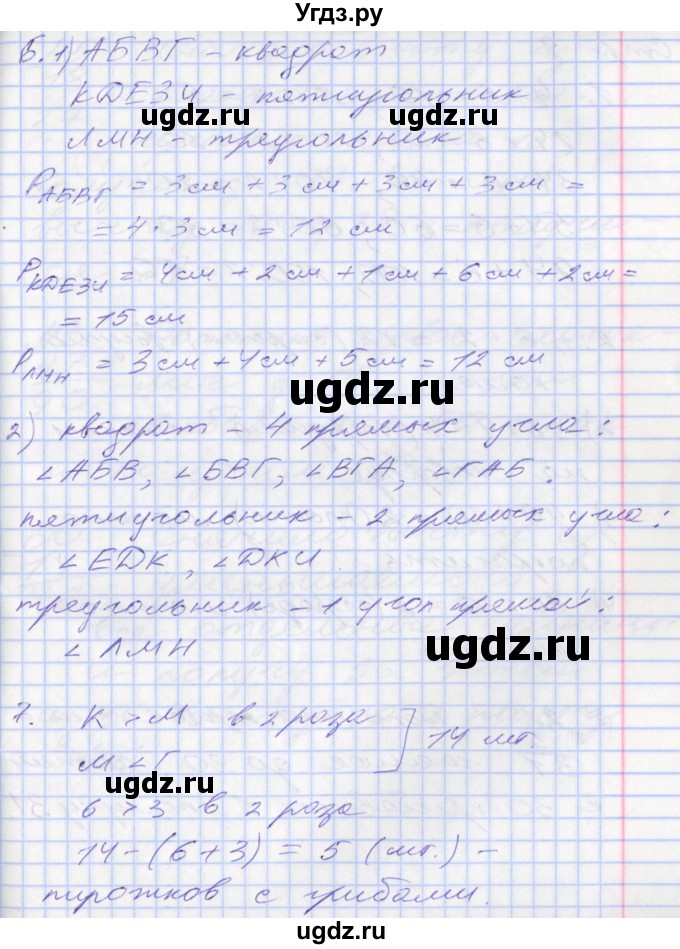 Угдз.ру
6. 1) АБВГ – квадрат
КДЕЗИ – пятиугольник
ugdz.ru ugdz.ru
ЛМН – треугольник
PАБВГ = 3 см + 3 см + 3 см + 3 см =
= 4 · 3 см = 12 см
PКДЕЗИ = 4 см + 2 см + 1 см + 6 см + 2 см =
= 15 см
PЛМН = 3 см + 4 см + 5 см = 12 см
ugdz.ru
2) квадрат – 4 прямых угла:
∠АБВ, ∠БВГ, ∠ВГА, ∠ГАБ.
пятиугольник – 2 прямых угла:
∠ЕДК, ∠ДКИ
треугольник – 1 угол прямой:
ugdz.ru
∠ЛМН
7. К > М в 2 раза
14 шт.
М < Г
ugdz.ru ugdz.ru
6 > 3 в 2 раза
14 – (6 + 3) = 5 (шт.) –
пирожков с грибами.
ugdz.ru